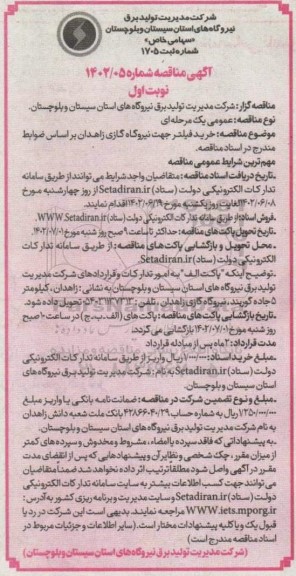 شرکت مدیریت تولید برق
نیروگاه‌های استان سیستان وبلوچستان
«سهامی خاص»
شماره ثبت ۱۷۰۵
آگهی مناقصه شماره ۱۴۰۲/۰۵
نوبت اول
مناقصه گزار: شرکت مدیریت تولید برق نیروگاه های استان سیستان و بلوچستان.
نوع مناقصه: عمومی یک مرحله ای
موضوع مناقصه: خرید فیلتر جهت نیروگاه گازی زاهدان بر اساس ضوابط
مندرج در اسناد مناقصه.
مهم‌ترین شرایط عمومی مناقصه
.تاریخ دریافت اسناد مناقصه: متقاضیان واجد شرایط می توانند از طریق سامانه
تدارکات الکترونیکی دولت (ستاد) Setadiran.ir از روز چهارشنبه مورخ
۱۴۰۲/۰۶/۰۸ لغایت روز یکشنبه مورخ ۱۴۰۲/۰۶/۱۹ اقدام نمایند.
.فروش اسناد: از طریق سامانه تدارکات الکترونیکی دولت (ستاد) WWW.Setadiran.ir
.تاریخ تحویل پاکت های مناقصه: حداکثر تا ساعت ۹ صبح روز شنبه مورخ ۱۴۰۲/۰۷/۰۱
. محل تحویل و بازگشایی پاکت های مناقصه: از طریق سامانه تدارکات
الکترونیکی دولت (ستاد) Setadiran.ir
.توضیح اینکه "پاکت الف" به امور تدارکات و قراردادهای شرکت مدیریت
تولید برق نیروگاه های استان سیستان و بلوچستان به نشانی: زاهدان، کیلومتر
۵ جاده کورین، نیروگاه گازی زاهدان، تلفن: تحویل داده شود.
.تاریخ بازگشایی پاکت های مناقصه: پاکت های (الف، ب، ج) در ساعت ۱۰ صبح
روز شنبه مورخ ۱۴۰۲/۰۷/۰۱ بازگشایی می گردد.
مدت قرارداد: ۲ ماه پس از مبادله قرارداد
.مبلغ خرید اسناد: ریال واریز از طریق سامانه تدارکات الکترونیکی
دولت (ستاد) Setadiran.ir به نام: شرکت مدیریت تولید برق نیروگاه های
استان سیستان و بلوچستان.
.مبلغ و نوع تضمین شرکت در مناقصه: ضمانت نامه بانکی یا واریز مبلغ
ریال به شماره حساب بانک ملت شعبه دانش زاهدان
به نام شرکت مدیریت تولید برق نیروگاه های استان سیستان و بلوچستان.
.به پیشنهاداتی که فاقد سپرده یا امضاء، مشروط و مخدوش و سپرده های کمتر
از میزان مقرر، چک شخصی و نظایر آن و پیشنهادهایی که پس از انقضای مدت
مقرر در آگهی واصل شود مطلقا ترتیب اثر داده نخواهد شد ضمناً متقاضیان
می توانند جهت کسب اطلاعات بیشتر به سایت سامانه تدارکات الکترونیکی
دولت (ستاد) Setadiran.ir و سایت مدیریت و برنامه ریزی کشور به آدرس:
WWW.iets.mporg.ir مراجعه نمایند. بدیهی است این شرکت در رد یا
قبول یک و یا کلیه پیشنهادات مختار است. (سایر اطلاعات و جزئیات مربوط در
اسناد مناقصه مندرج است)
(شرکت مدیریت تولید برق نیروگاه های استان سیستان و بلوچستان)